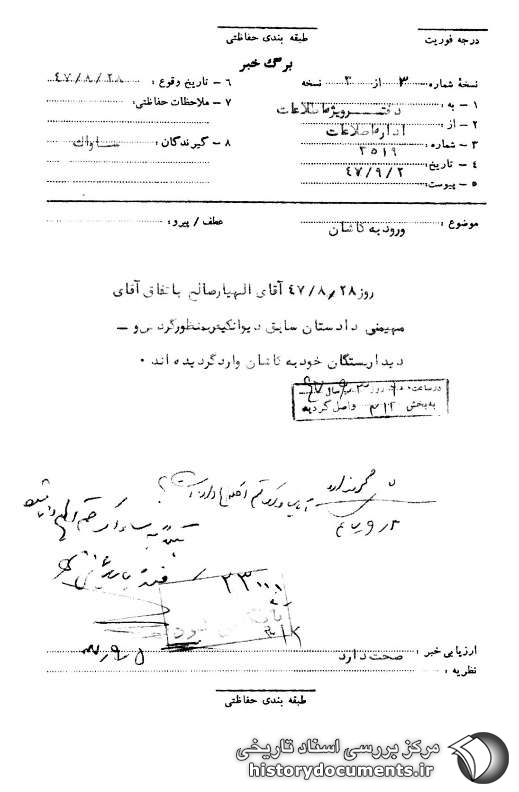 درجه فوریت
طبقه بندی حفاظتی
برگ خبر
نسخهٔ شماره ۳ از ۳ نسخه
۱ - به : دفتر ویژه اطلاعات
۲ - از : اداره اطلاعات
۳ - شماره : ۳۵۱۹
۴ - تاریخ : ۴۷/۹/۲
۵ - پیوست :
۶ - تاریخ وقوع : ۴۷/۸/۲۸
۷ - ملاحظات حفاظتی :
۸ - گیرندگان : ساواك
موضوع : ورود به کاشان
عطف / پیرو :
روز ۴۷/۸/۲۸ آقای الهیار صالح باتفاق آقای
مهیمنی دادستان سابق دیوانکیفر بمنظور گردش و -
دیدار بستگان خود به کاشان وارد گردیده اند ۰
در ساعت روز سال
به بخش ۳۱۲ واصل گردید
۲۳۰۰۰
بایگانی شود
ارزیابی خبر : صحت دارد
نظریه :
طبقه بندی حفاظتی
مرکز بررسی اسناد تاریخی
historydocuments.ir